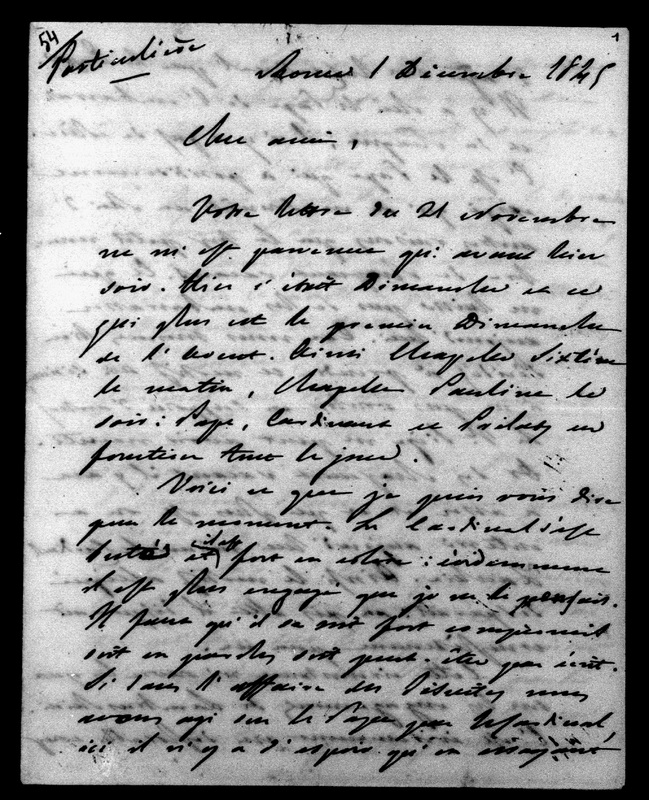 54
1
Particulière
Rome 1 Décembre 1845
Cher ami,
Votre lettre du 21 Novembre
ne m'est parvenue qu'avant hier
soir. Hier c'était Dimanche et ce
qui plus est le premier Dimanche
de l'Avent. Ainsi Chapelle Sixtine
le matin, Chapelle Pauline le
soir: Pape, Cardinaux et Prélats en
fonction tout le jour.
Voici ce que je puis vous dire
pour le moment. Le Cardinal s'est
il est fort en colère: évidemment
il est plus engagé que je ne le pensais.
Il faut qu'il se soit fort compromis
soit en paroles soit peut-être par écrit.
Si dans l'affaire des Jésuites nous
avons agi sur le Pape par le Cardinal
ici il n'y a d'espoir qu'en essayant